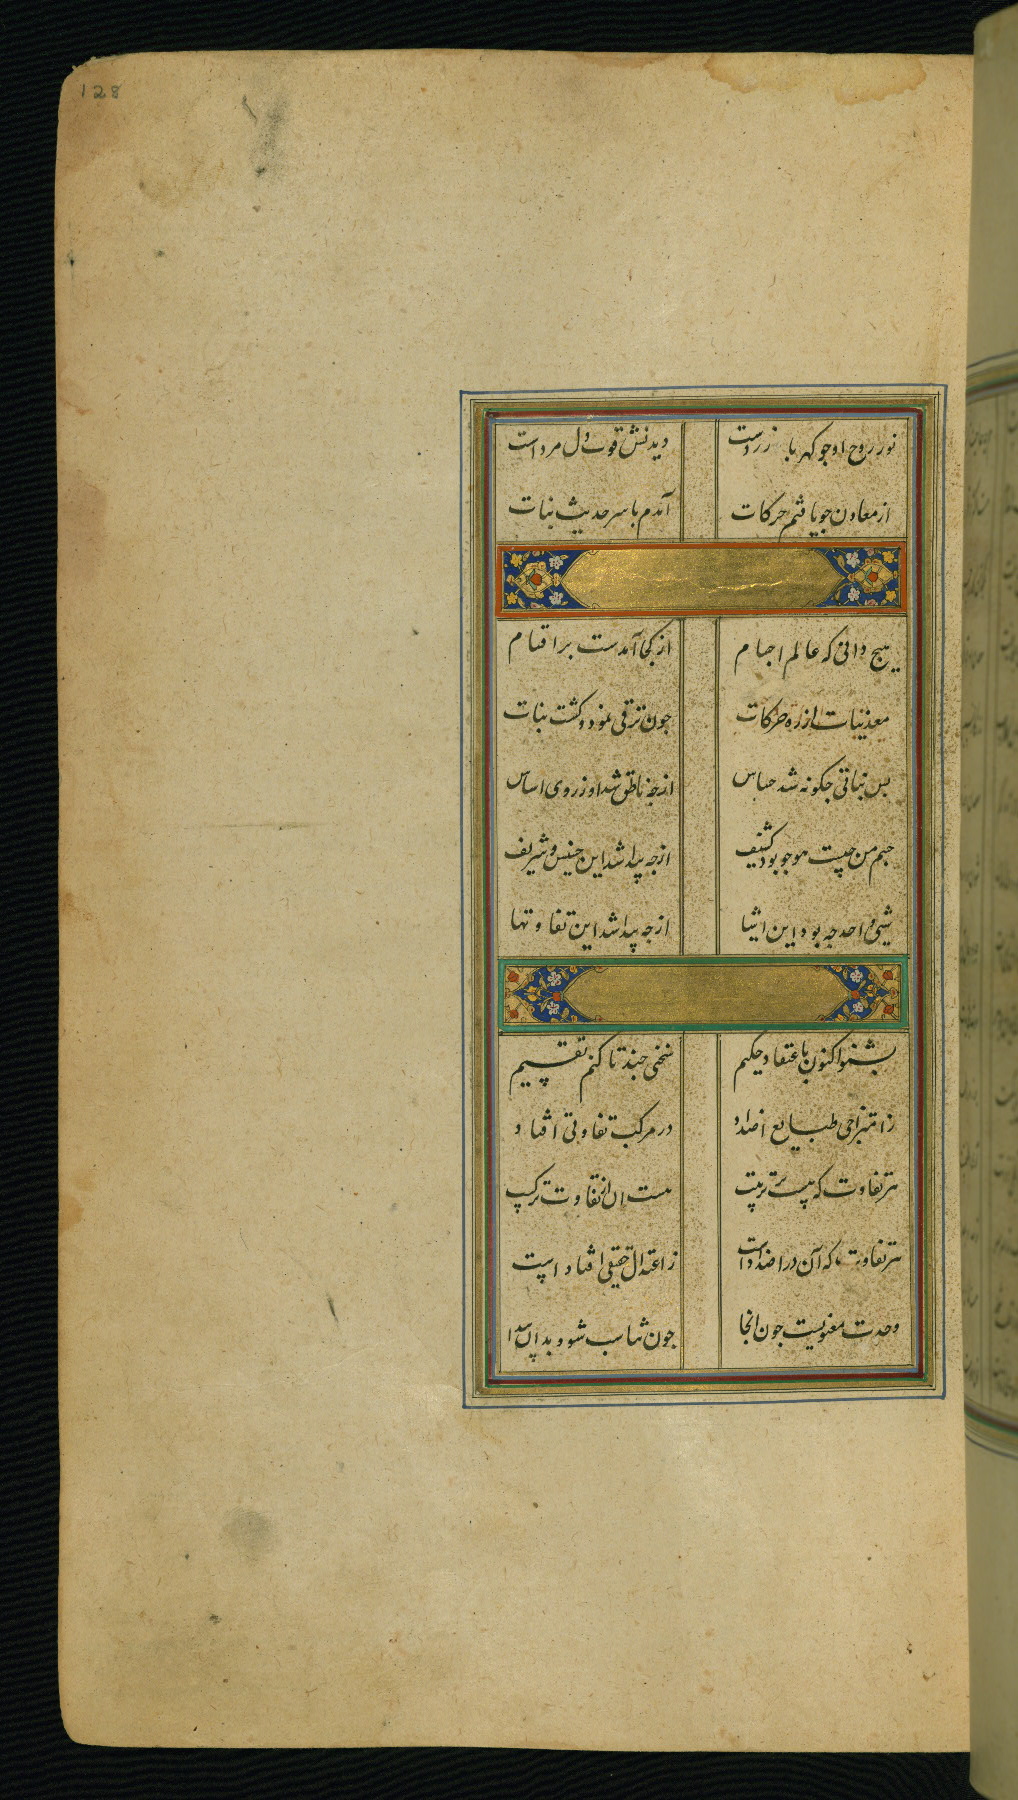 128
نور روح او چو کهربا زردست دیدنش قوت دل مرداست
از معادن چو یافتم حرکات آمدم با سر حدیث نبات
هیچ دانی که عالم اجسام از کجا آمدست بر اقسام
معدنیات از ره حرکات چون ترقی نمود و کشت نبات
بس نباتی چکونه شد حساس از چه ناطق شد او ز روی اساس
جسم من چیست هو چو بود کثیف از چه پیدا شد این خسیس و شریف
شیئ واحد چه بود این اشیا از چه پیدا شد این تفاوتها
بشنو اکنون باعتقاد حکیم سخنی چند تا کنم تقسیم
ز امتزاجی طبایع اضداد در مرکب تفاوتی افتاد
هر تفاوت که هست در ترتیب هست ان از تفاوت ترکیب
هر تفاوت که آن در اضداداست ز اعتدال حقیقی افتاداست
وحدت معنویست چون انجا چون مناسب شود بدان پیدا